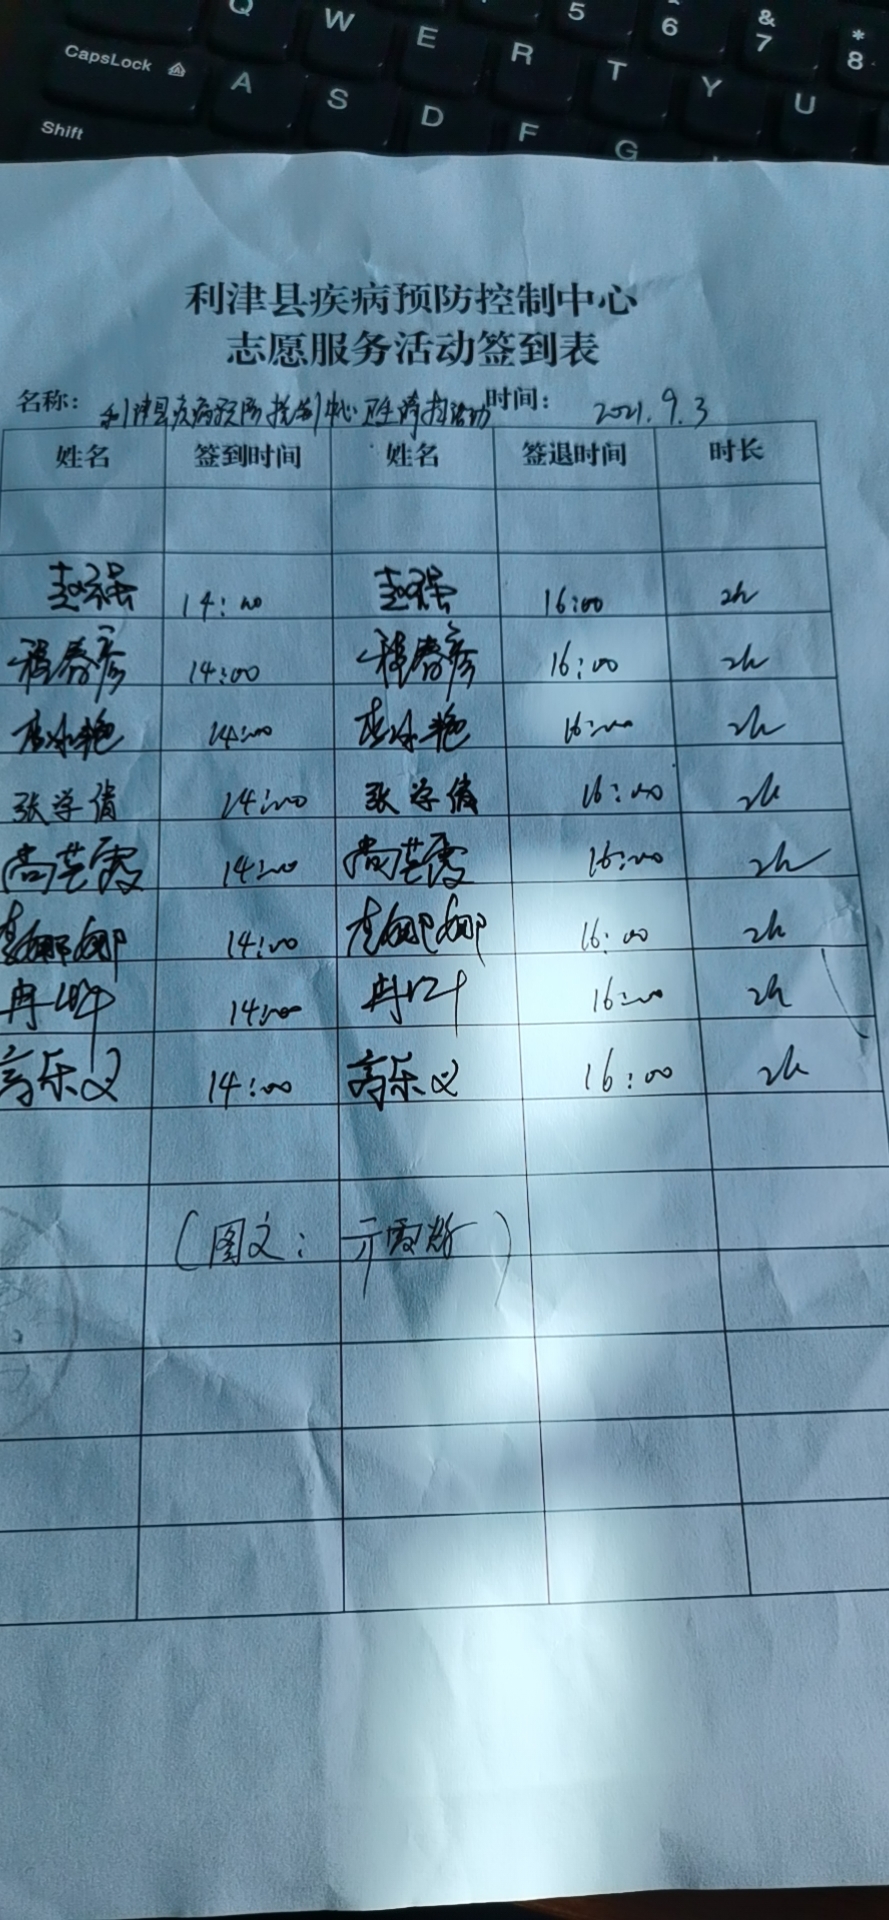 Q W E R T Y U 5 6 & 7 * 8
CapsLock A S D F G
Shift
利津县疾病预防控制中心
志愿服务活动签到表
名称: 利津县疾病预防控制中心卫生清扫活动 时间: 2021.9.3
姓名 签到时间 姓名 签退时间 时长
赵强 14:00 赵强 16:00 2h
程春彦 14:00 程春彦 16:00 2h
14:00 16:00 2h
张学倩 14:00 张学倩 16:00 2h
尚芸霞 14:00 尚芸霞 16:00 2h
李娜娜 14:00 李娜娜 16:00 2h
14:00 16:00 2h
高乐义 14:00 高乐义 16:00 2h
(图文: )